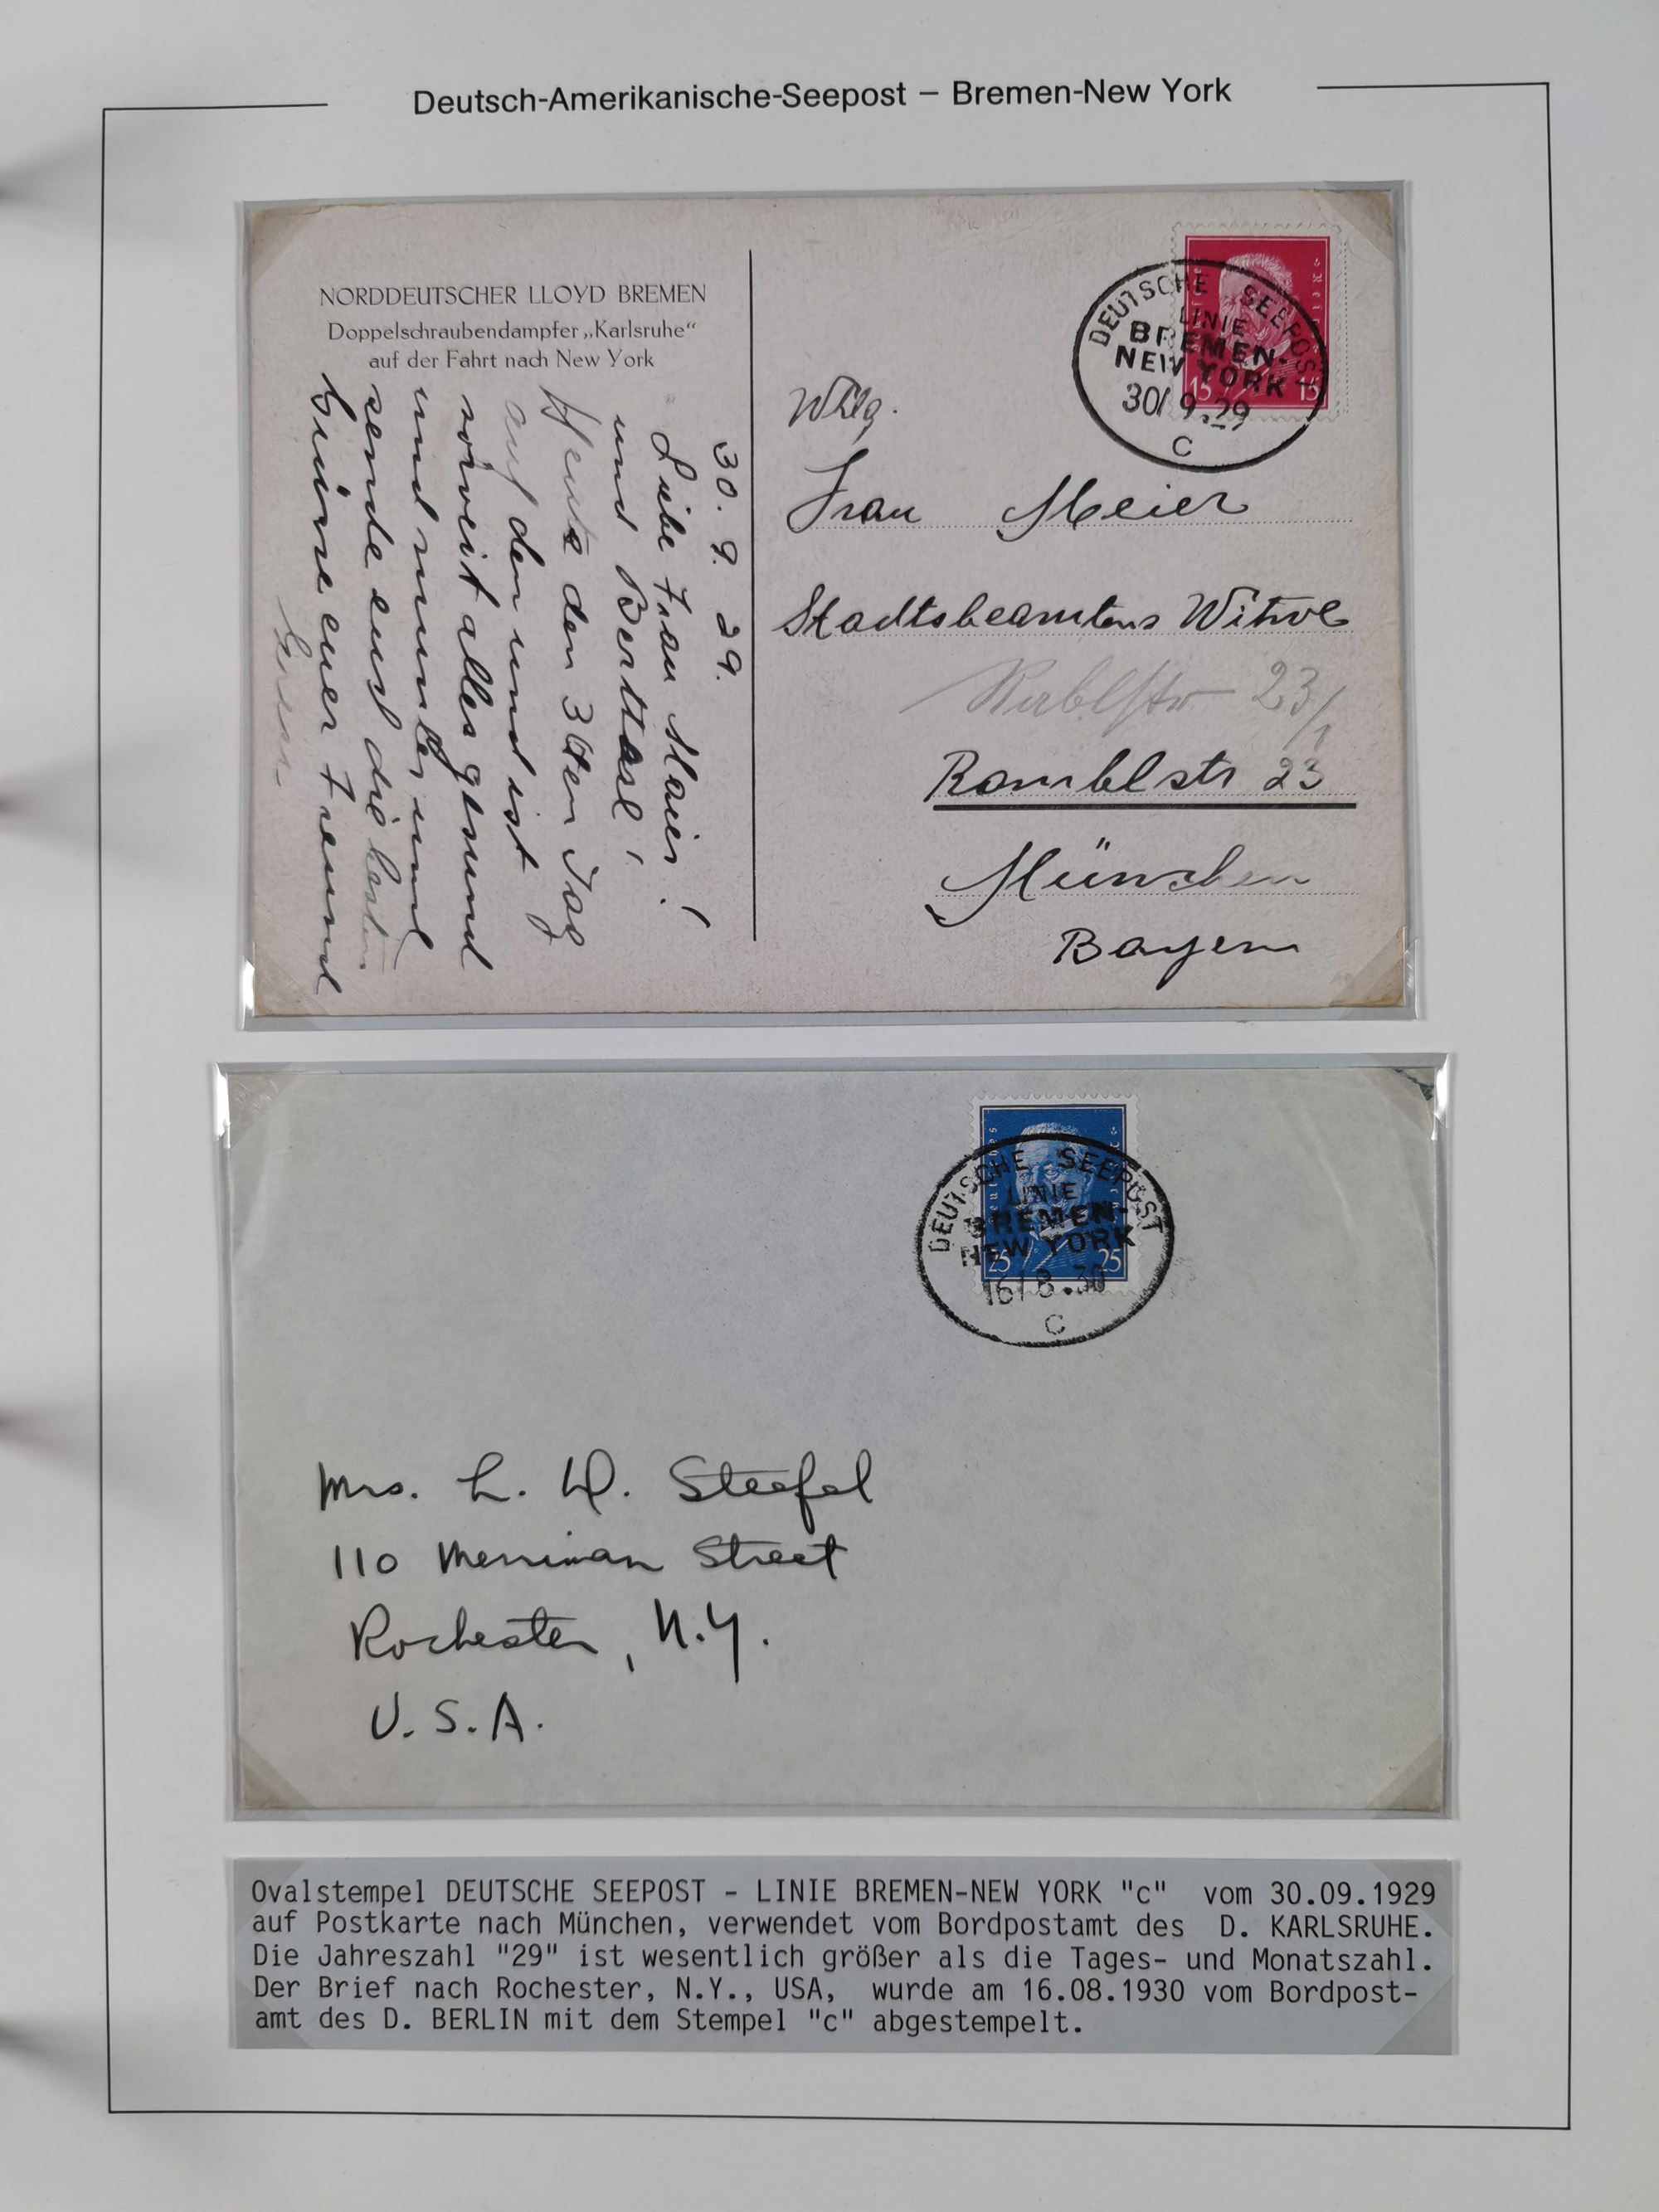 Deutsch-Amerikanische-Seepost – Bremen-New York
NORDDEUTSCHER LLOYD BREMEN
Doppelschraubendampfer „Karlsruhe“
auf der Fahrt nach New York
30. 9. 29.
Liebe Frau Maier!
und Bertharl!
Heute den 3ten Tag
auf den und ist
soweit alles gesund
und munter und
sende euch die besten
Grüsse euer Freund
DEUTSCHE SEEPOST
LINIE
BREMEN-
NEW YORK
30/ 9.29
c
15 15
Frau Meier
Stadtsbeamtens Witwe
23/1
Ramblstr 23
München
Bayern
DEUTSCHE SEEPOST
LINIE
BREMEN-
NEW YORK
25 25
16/ 8.30
c
Mrs. L. D. Steefel
110 Merriman Street
Rochester, N.Y.
U.S.A.
Ovalstempel DEUTSCHE SEEPOST - LINIE BREMEN-NEW YORK "c" vom 30.09.1929
auf Postkarte nach München, verwendet vom Bordpostamt des D. KARLSRUHE.
Die Jahreszahl "29" ist wesentlich größer als die Tages- und Monatszahl.
Der Brief nach Rochester, N.Y., USA, wurde am 16.08.1930 vom Bordpost-
amt des D. BERLIN mit dem Stempel "c" abgestempelt.